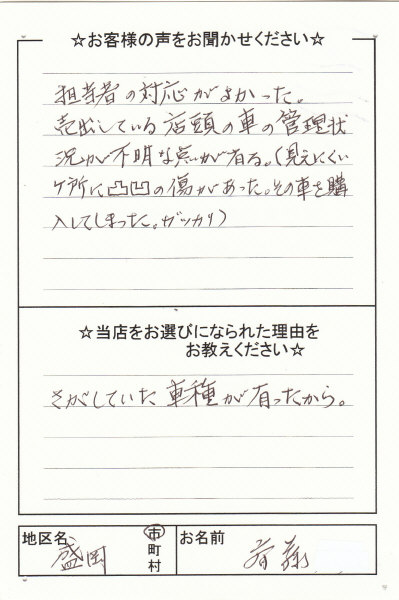 ☆お客様の声をお聞かせください☆
担当者の対応がよかった。
売出している店頭の車の管理状
況が不明な点が有る。(見えにくい
ケ所に凸凹の傷があった。その車を購
入してしまった。ガッカリ)
☆当店をお選びになられた理由を
お教えください☆
さがしていた車種が有ったから。
地区名 盛岡 市町村 お名前 斉藤